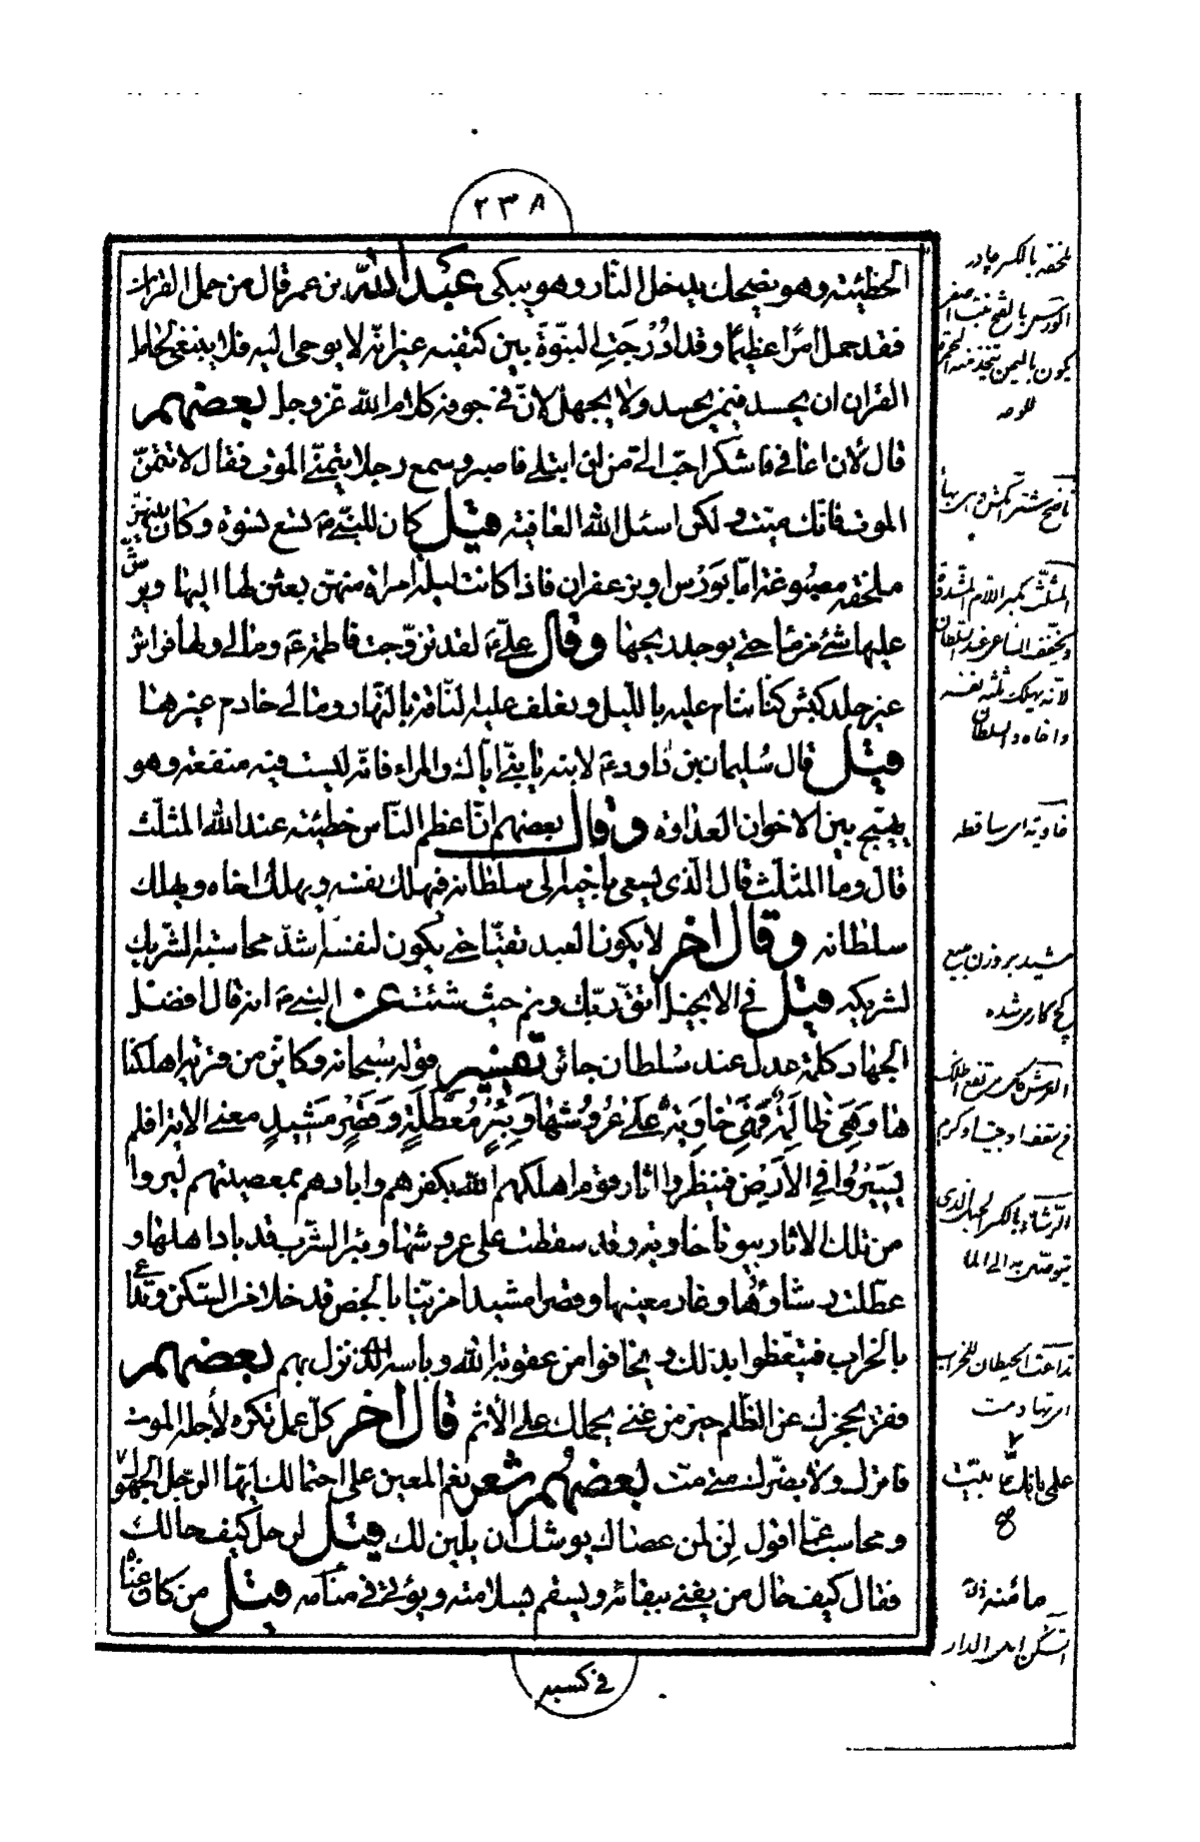 ٢٣٨
الخطيئة وهو يضحك يدخل النار وهو يبكى عبد الله بن عمر قال من حمل القران
فقد حمل امرا عظيما وقد ادرجت النبوة بين كتفيه غير انه لا يوحى اليه فلا ينبغى لحامل
القران ان يحسد فيمن يحسد ولا يجهل لان فى جوفه كلام الله عز وجل بعضهم
قال لان اعافى فاشكر احب الى من ان ابتلى فاصبر وسمع رجلا يتمنى الموت فقال لا تتمن
الموت فانك ميت ولكن اسئل الله العافية قيل كان للنبى ۴ تسع نسوة وكان بينهن
ملحفة مصبوغة اما بورس او بزعفران فاذا كانت ليلة امراة منهن بعثن لها اليها ويرش
عليها شئ من ماء حتى يوجد ريحها وقال على ع لقد تزوجت فاطمة ع وما لى ولها فراش
غير جلد كبش كنا ننام عليه بالليل ونعلف عليه لنا ناقة بالنهار وما لى خادم غيرها
قيل قال سليمان بن داود ع لابنه يا بنى اياك والمراء فانه ليست فيه منفعة وهو
يهيج بين الاخوان العداوة وقال بعضهم ان اعظم الناس خطيئة عند الله المثلث
قال وما المثلث قال الذى يسعى باخيه الى سلطانه فيهلك نفسه ويهلك اخاه ويهلك
سلطانه وقال اخر لا يكون العبد تقيا حتى يكون لنفسه اشد محاسبة الشريك
لشريكه قيل فى الانجيل اتق ربك ونم حيث شئت عن النبى ۴ انه قال افضل
الجهاد كلمة عدل عند سلطان جائر تفسير قوله سبحانه وكاين من قرية اهلكنا
ها وَهِىَ ظالِمَةٌ فَهِىَ خاوِيَةٌ عَلى عُرُوشِها وَبِئْرٍ مُعَطَّلَةٍ وَقَصْرٍ مَشِيدٍ معنى الاية افلم
يَسِيرُوا فِى الاَرْضِ فينظروا اثار قوم اهلكهم الله بكفرهم وابادهم بمعصيتهم ليروا
من تلك الاثار بيوتا خاوية وقد سقطت على عروشها وبئر الشرب قد باد اهلها و
عطلت رشاؤها وغار معينها وقصرا مشيدا مزينا بالجص قد خلا من السكن وتداعى
بالخراب فيتعظوا بذلك ويخافوا من عقوبة الله وباسه الذى نزل بهم بعضهم
فقر يحجزك عن الظلم خير من غنى يحملك على الاثم قال اخر كل عمل تكره لأجله الموت
فاتركه ولا يضرك متى مت بعضهم شعر نعم المعين على احتمالك ايها الرجل الجهول
ومحاسب عما اقول لئن من عصاك يوشك ان يلين لك قيل لرجل كيف حالك
فقال كيف حال من يفنى ببقائه ويسقم بسلامته ويؤتى فى منامه قيل من كان غناه
فى كسبه
ملحفه بالكسر چادر
الورس بالفتح نبت اصفر
يكون باليمن تتخذ منه الحمرة
للوجه
ناضح شتر آبكش
المثلث بكسر اللام المشددة
ويخفف الساعى عند السلطان
لانه يهلك ثلثة نفسه
واخاه والسلطان
خاوية اى ساقطة
مشيد بروزن مبيع
گچ كارى شده
الرشاء بالكسر الحبل الذى
يتوصل به الى الماء
تداعت الحيطان للخراب
اى تهادمت
السكن اهل الدار